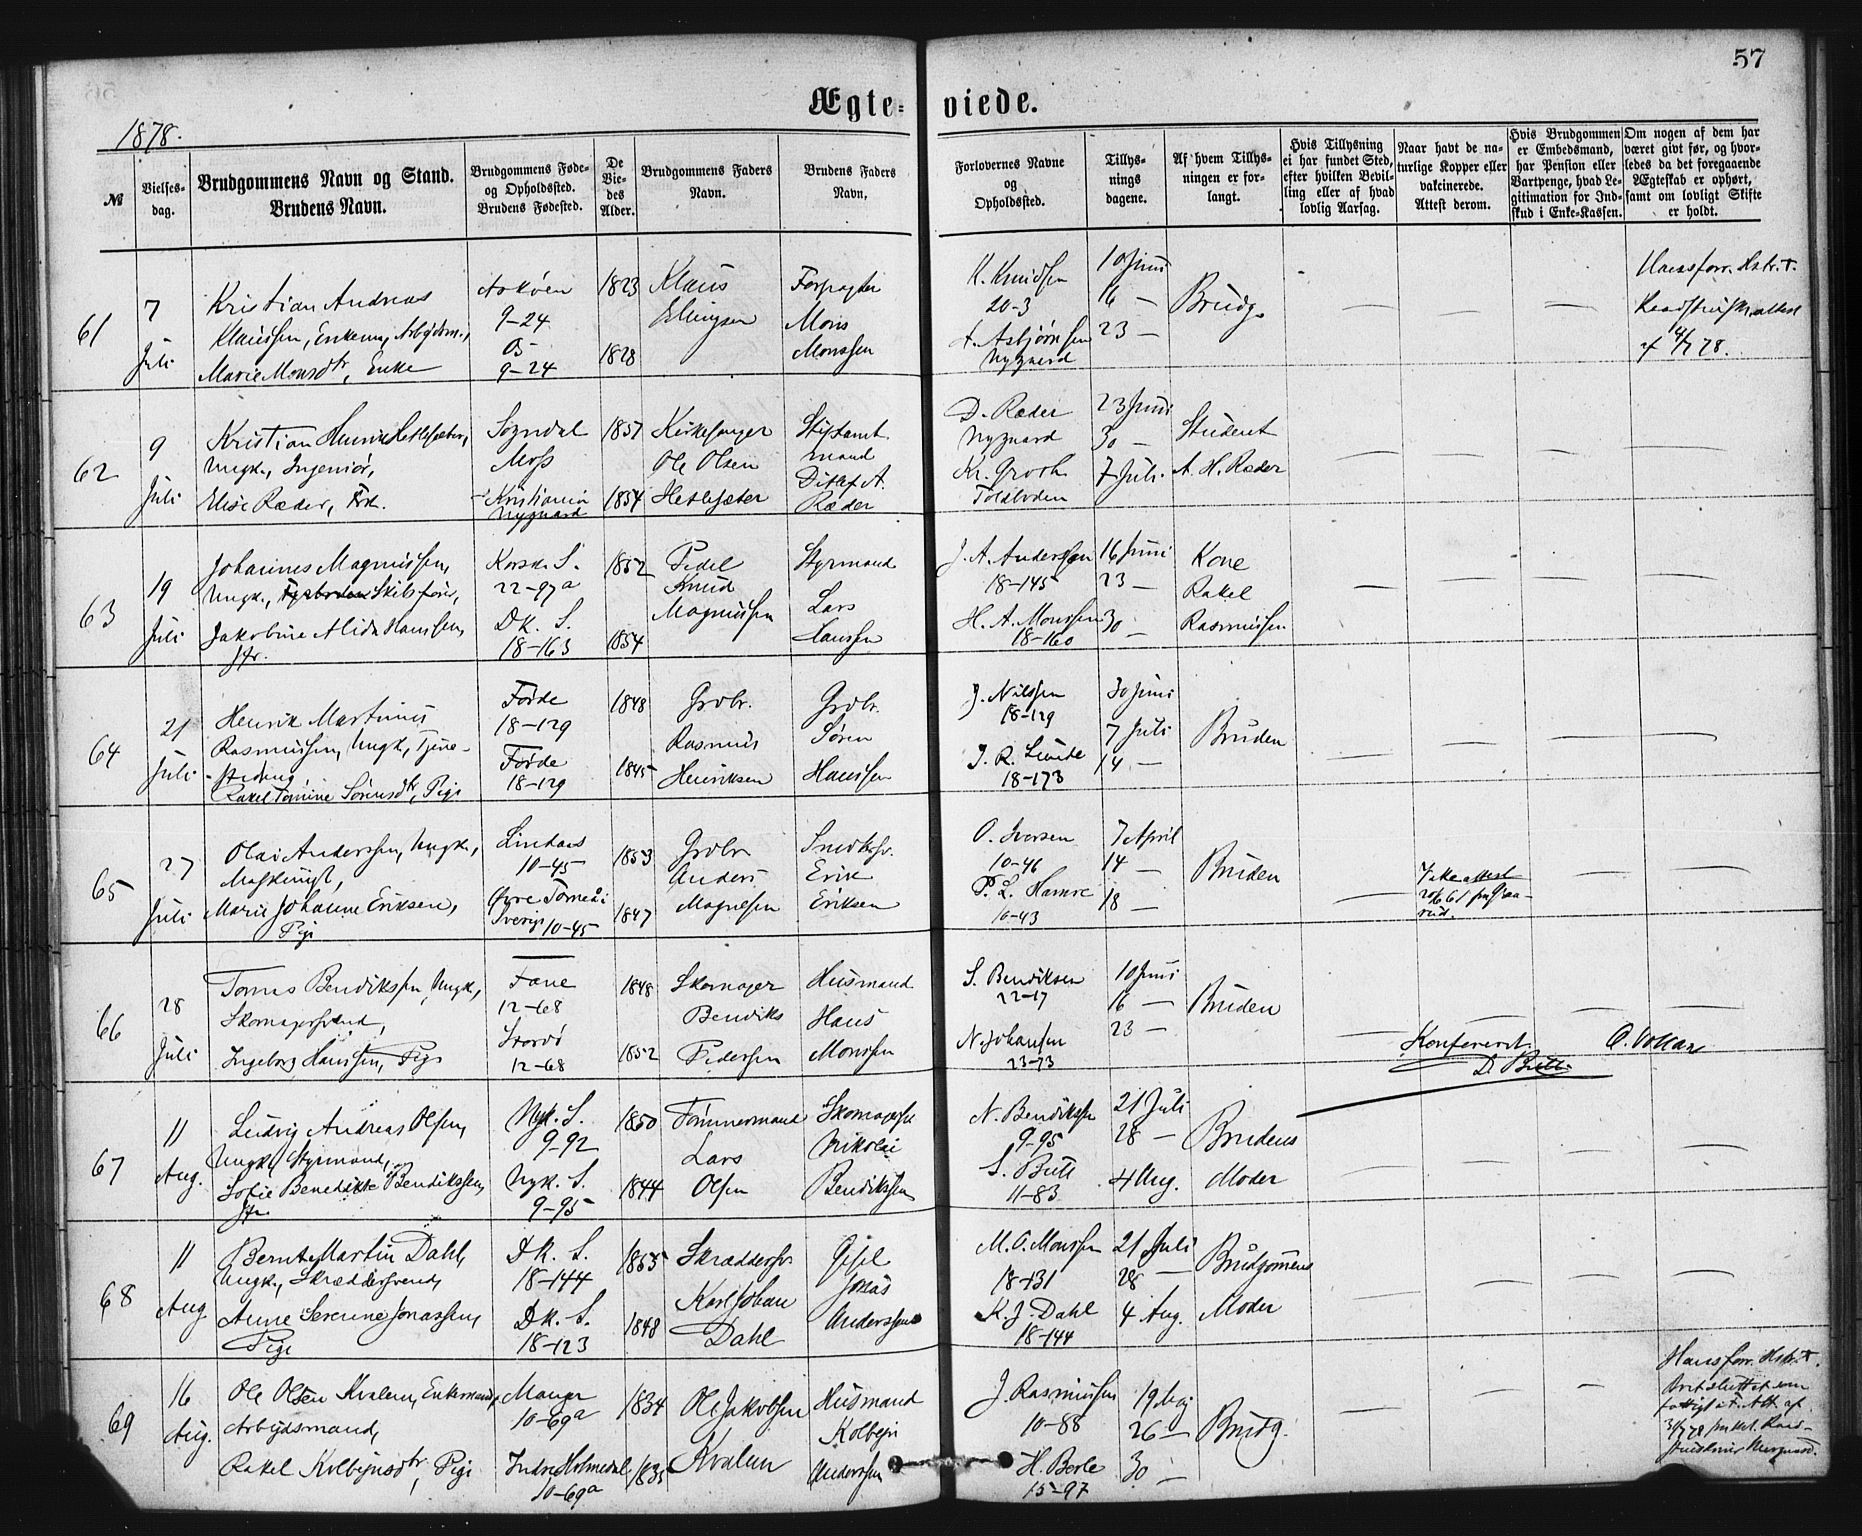 57
Ægte- viede.
1878.
№
Vielses-
dag.
Brudgommens Navn og Stand.
Brudens Navn.
Brudgommens Føde-
og Opholdssted.
Brudens Fødested.
De
Vie-
des
Alder.
Brudgommens Faders
Navn.
Brudens Faders
Navn.
Forlovernes Navne
og
Opholdssted.
Tillys-
nings
dagene.
Af hvem Tillys-
ningen er for-
langt.
Hvis Tillysning
ei har fundet Sted,
efter hvilken Bevil-
ling eller af hvad
lovlig Aarsag.
Naar havt de na-
turlige Kopper eller
vakcinerede.
Attest derom.
Hvis Brudgommen
er Embedsmand,
har Pension eller
Vartpenge, hvad Le-
gitimation for Ind-
skud i Enke-Kassen.
Om nogen af dem har
været givt før, og hvor-
ledes da det foregaaende
Ægteskab er ophørt,
samt om lovligt Skifte
er holdt.
61
7
Juli
Kristian Andreas
Klaussen, Enkem., Arbejdsm.,
Marie Monsdtr, Enke
Askøen
9-24
Os
9-24
1823
1828
Klaus
Ellingsen
Forpagter
Mons
Monssen
K. Knudsen
20-3
A. Asbjørnsen
Nygaard
10 Juni
16 —
23 —
Brudg.
4/7 78.
62
9
Juli
Kristian Henrik Hetlesæter,
Ungk., Ingeniør,
Elise Ræder, Frk.
Sogndal
Moss
Kristiania
Nygaard
1851
1854
Kirkesanger
Ole Olsen
Hetlesæter
Stiftamt
mand
Ditlef A.
Ræder
D. Ræder
Nygaard
Kr. Groth
Toldboden
23 Juni
30 —
7 Juli
Student
A. H. Ræder
63
19
Juli
Johannes Magnussen,
Ungk., Skibsfører,
Jakobine Alida Hanssen,
Jfr.
Korsk. S.
22-97a
Dk. S.
18-163
1852
1854
Pedel
Knud
Magnussen
Styrmand
Lars
Hanssen
J. A. Anderssen
18-145
H. A. Monssen
18-160
16 Juni
23 —
30 —
Kone
Rakel
Rasmussen
64
21
Juli
Henrik Martinus
Rasmussen, Ungk., Tjene-
stedreng
Rakel Tomine Sørensdtr, Pige
Førde
18-129
Førde
18-129
1848
1845
Grdbr.
Rasmus
Henriksen
Grdbr.
Søren
Hanssen
J. Nilssen
18-129
J. R. Lunde
18-173
30 Juni
7 Juli
14 —
Bruden
65
27
Juli
Olai Anderssen, Ungk.,
Maskinist,
Marie Johanne Eriksen,
Pige
Lindaas
10-45
Øvre Torneå i
Sverige 10-45
1853
1847
Grdbr
Anders
Magnesen
Snedkersv.
Erik
Eriksen
O. Iversen
10-46
P. L. Hamre
10-43
7 April
14 —
18 —
Bruden
66
28
Juli
Tomas Bendikssen, Ungk.,
Skomagersvend,
Ingeborg Hanssen, Pige
Fane
12-68
Stordø
12-68
1848
1852
Skomager
Bendiks
Pederssen
Husmand
Hans
Monssen
S. Bendiksen
22-17
N. Johansen
23-73
10 Juni
16 —
23 —
Bruden
Konfereret.
D. Bull
O. Vollan
67
11
Aug.
Ludvig Andreas Olsen,
Ungk. Styrmand,
Sofie Benedikte Bendikssen,
Jfr.
Nyk. S.
9-92
Nyk. S.
9-95
1850
1844
Tømmermand
Lars
Olsen
Skomagersv.
Nikolai
Bendikssen
N. Bendikssen
9-95
S. Bull
11-83
21 Juli
28 —
4 Aug.
Brudens
Moder
68
11
Aug.
Bernt Martin Dahl,
Ungk., Skræddersvend,
Anne Severine Jonassen,
Pige
Dk. S.
18-144
Dk. S.
18-123
1855
1848
Skræddersv.
Karl Johan
Dahl
Jonas
Anderssen
M. O. Monssen
18-131
K. J. Dahl
18-144
21 Juli
28 —
4 Aug.
Brudgommens
Moder
69
16
Aug.
Ole Olsen Kvalem, Enkemand,
Arbejdsmand,
Rakel Kolbejnsdtr, Pige
Manger
10-69a
Indre Holmedal
10-69a
1834
1835
Ole Jakobsen
Kvalem
Husmand
Kolbejn
Anderssen
J. Rasmussen
10-88
H. Berle
15-97
19 Maj
26 —
30 —
Brudg.